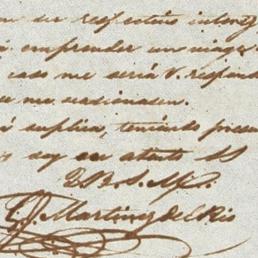 un su respectivo
emprender un
caso me será V. respon
me ocasionasen.
á suplica, teniendo presen
soy su atento SS
Q.B.S.M.
Martinez del Rio